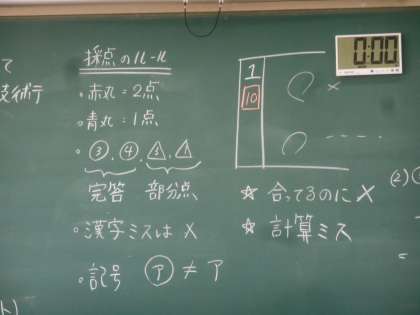 て
採点のルール
・赤丸=2点
・青丸=1点
・③, ④,
完答 部分点
・漢字ミスは×
・記号 ㋐ ≠ ア
1
10
×
0:00
☆ 合ってるのに×
☆ 計算ミス
(2)
=
ト)